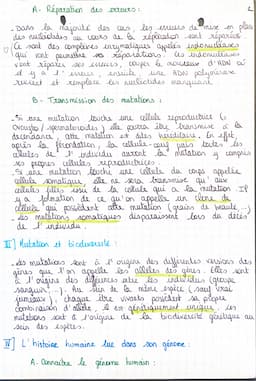 A. Réparation des erreurs :
- Dans la majorité des cas, les erreurs de mise en place
des nucléotides au cours de la réplication sont réparées.
Ce sont des complexes enzymatiques appelés
qui vont permettre ces réparations. Ces
vont repérer ses erreurs, couper le morceau d'ADN où
il y a l'erreur, ensuite, une ADN polymérase
revient et remplace les nucléotides manquant.
B. Transmission des mutations :
- Si une mutation touche une cellule reproductrice (
ovocytes / spermatozoïdes), elle pourra être transmise à la
descendance, cette mutation est dites héréditaire. En effet,
après la fécondation, la cellule-œuf puis toutes les
cellules de l'individu auront la mutation y compris
ses propres cellules reproductrices.
- Si une mutation touche une cellule du corps appelée
cellule somatique elle ne sera transmise qu'aux
cellules filles issu de la cellule qui a la mutation. Il
y a formation de ce qu'on appelle un clone de
cellule qui possèdent cette mutation (grains de beauté...)
- Les mutations somatiques disparaissent lors du décès
de l'individu.
III] Mutation et biodiversité :
- Les mutations sont à l'origine des différentes versions des
gènes que l'on appelle les allèles des gènes. Elles sont
à l'origine des différences entre les individus (groupe
sanguin...). Au sein de la même espèce (sauf vrai
jumeaux), chaque être vivant possédant sa propre
combinaison d'allèle, il est génétiquement unique. Les
mutations sont à l'origine de la biodiversité génétique au
sein des espèces.
IV] L'histoire humaine lue dans son génome :
A. Connaître le génome humain :